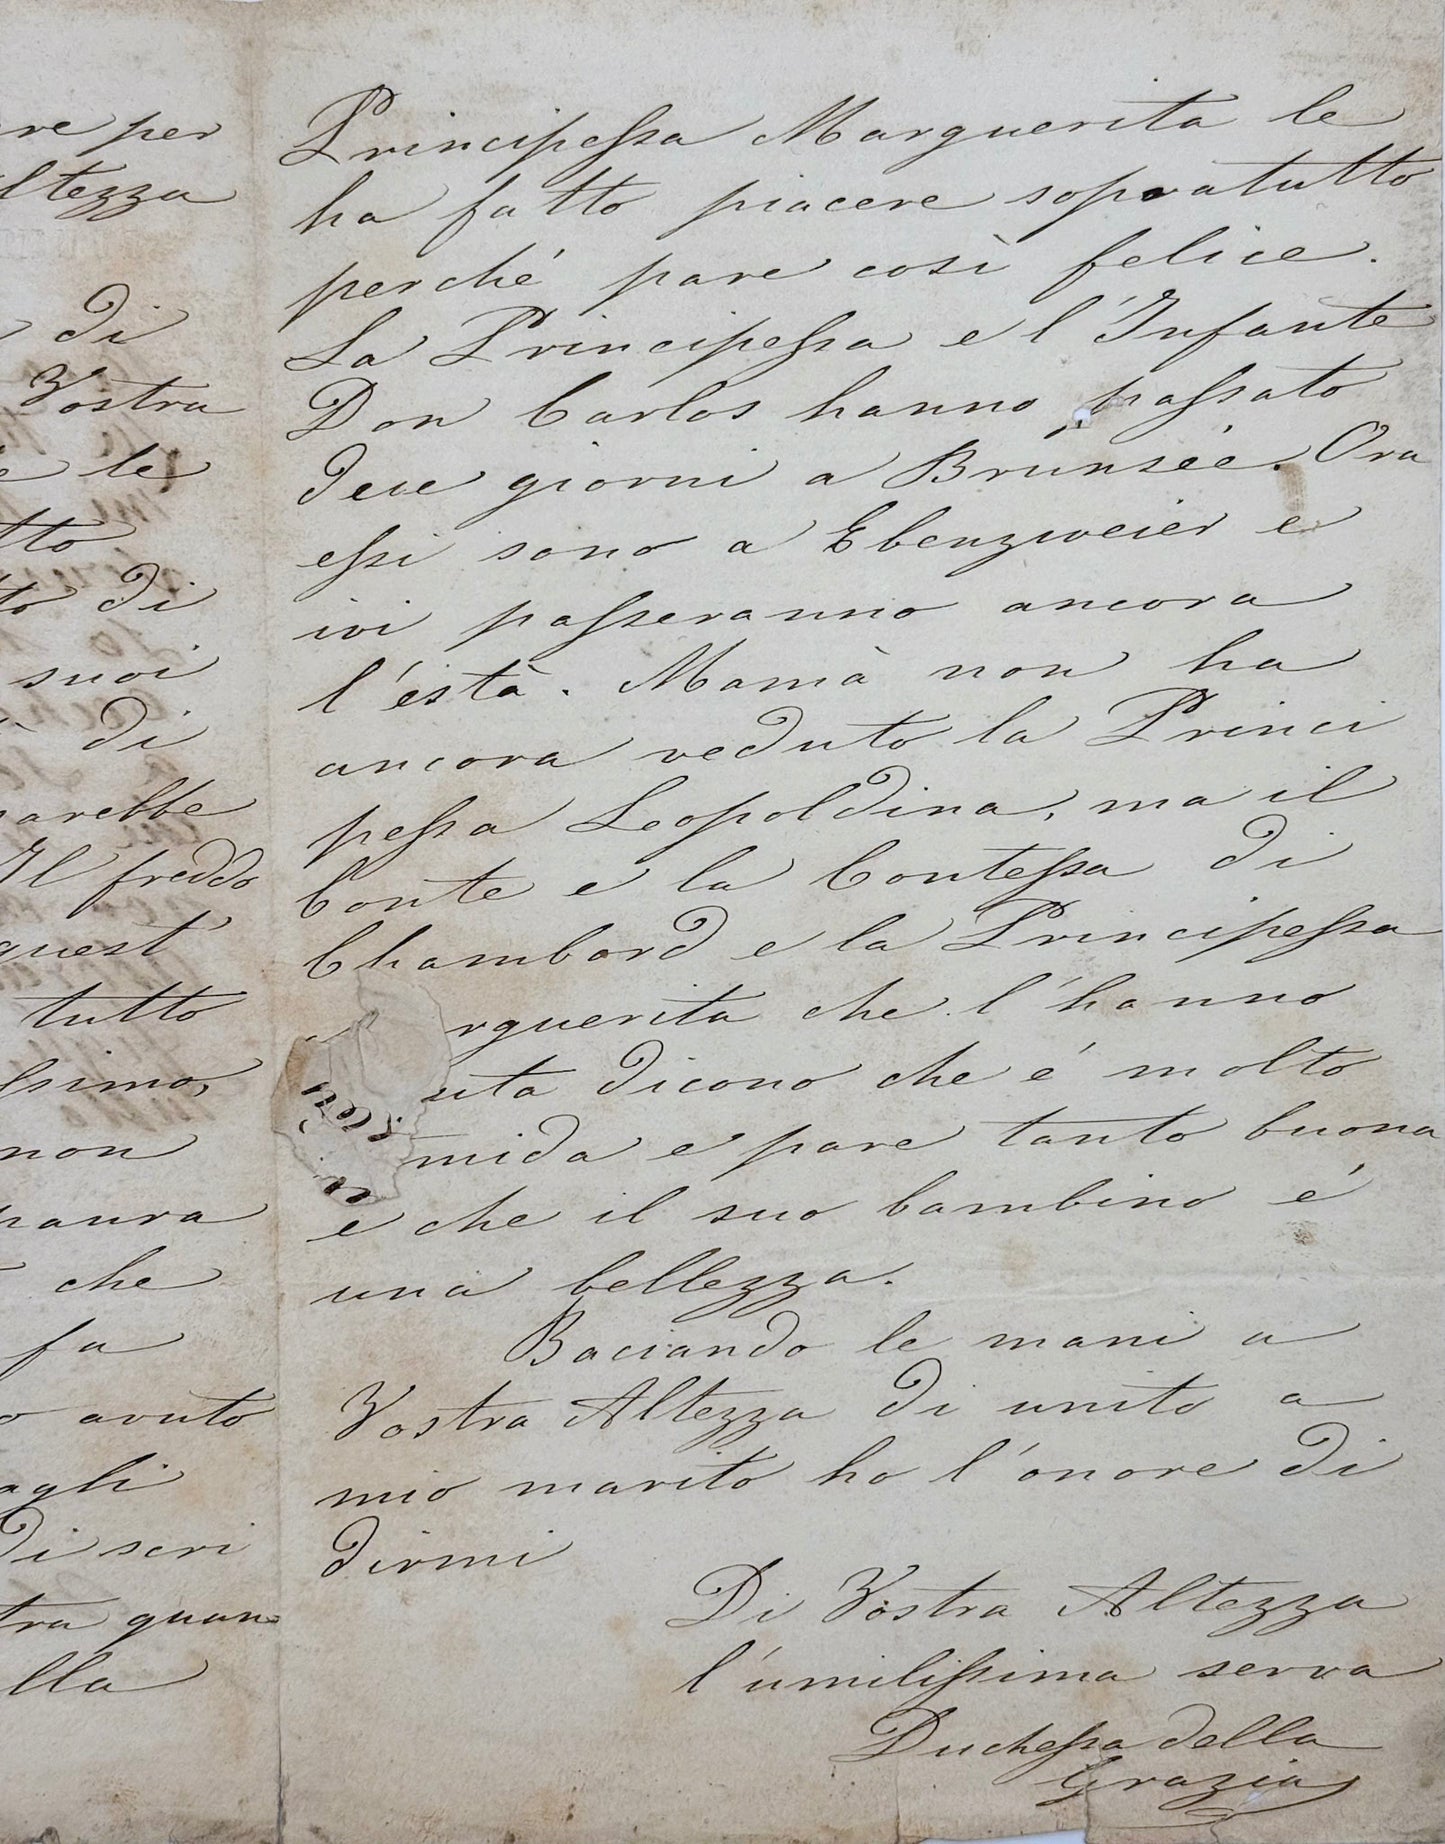 re per
ltezza
di
Vostra
e le
tto
to di
suoi
di
arebbe
Il freddo
quest'
tutto
ssimo,
non
paura
che
fa
o avuto
agli
di scri
tra quan
lla
Principessa Marguerita le
ha fatto piacere sopratutto
perché pare così felice.
La Principessa e l'Infante
Don Carlos hanno passato
dece giorni a Brunsée. Ora
essi sono a Ebenzweier e
ivi passeranno ancora
l'està. Mamà non ha
ancora veduto la Princi
pessa Leopoldina, ma il
Conte e la Contessa di
Chambord e la Principessa
rguerita che l'hanno
uta dicono che é molto
mida e pare tanto buona
e che il suo bambino é
una bellezza.
Baciando le mani a
Vostra Altezza di unito a
mio marito ho l'onore di
dirmi
Di Vostra Altezza
l'umilissima serva
Duchessa della
Grazia